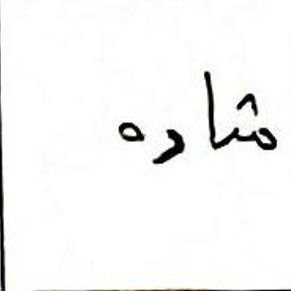 مشاده